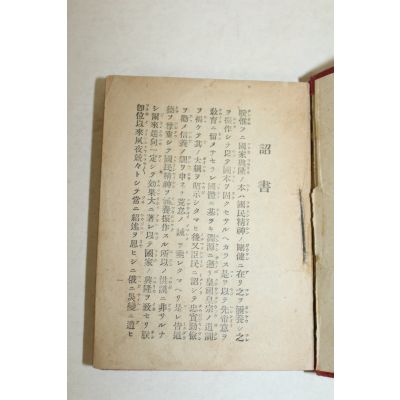 詔書
朕惟フニ國家興隆ノ本ハ國民精神ノ剛健ニ在リ之ヲ涵養シ之
ヲ振作シテ以テ國本ヲ固クセサルヘカラス是ヲ以テ先帝意ヲ
敎育ニ留メサセラレ國體ニ基キ淵源ニ遡リ皇祖皇宗ノ遺訓
ヲ掲ケテ其ノ大綱ヲ昭示シタマヒ後又臣民ニ詔シテ忠實勤儉
ヲ勸メ信義ノ訓ヲ申ネテ荒怠ノ誡ヲ垂レタマヘリ是レ皆道
德ヲ尊重シテ國民精神ヲ涵養振作スル所以ノ洪謨ニ非サルナ
シ爾來趨向一定シテ效果大ニ著レ以テ國家ノ興隆ヲ致セリ朕
卽位以來夙夜兢々トシテ常ニ紹述ヲ思ヒシニ俄ニ災變ニ遭ヒ